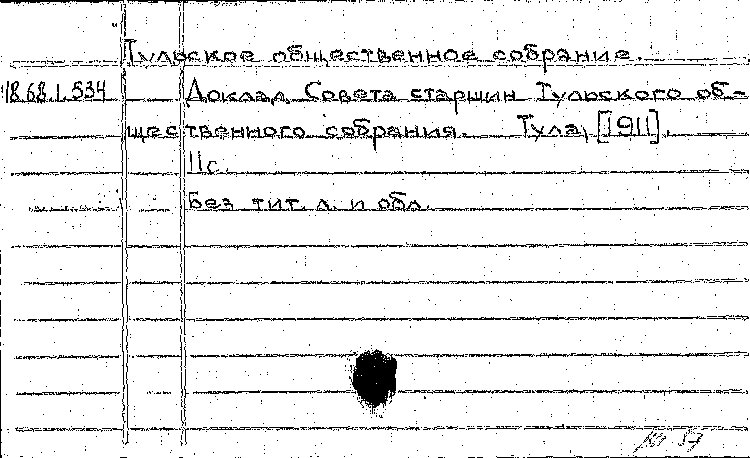 Тульское общественное собрание.
18.68.1.534 Доклад Совета старшин Тульского об-
щественного собрания. Тула, [1911].
11с.
Без тит. л. и обл.